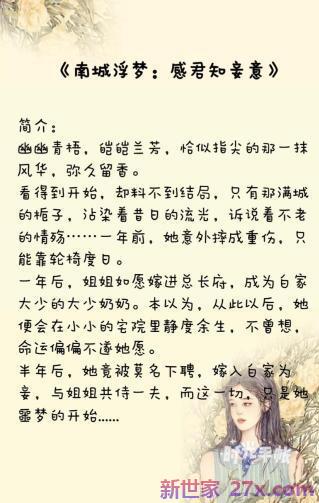 《南城浮梦：感君知妾意》
简介：
幽幽青梧，皑皑兰芳，恰似指尖的那一抹
风华，弥久留香。
看得到开始，却料不到结局，只有那满城
的栀子，沾染着昔日的流光，诉说着不老
的情殇……一年前，她意外摔成重伤，只
能靠轮椅度日。
一年后，姐姐如愿嫁进总长府，成为白家
大少的大少奶奶。本以为，从此以后，她
便会在小小的宅院里静度余生，不曾想，
命运偏偏不遂她愿。
半年后，她竟被莫名下聘，嫁入白家为
妾，与姐姐共侍一夫，而这一切，只是她
噩梦的开始……
时光手帐
新世家 27x.com